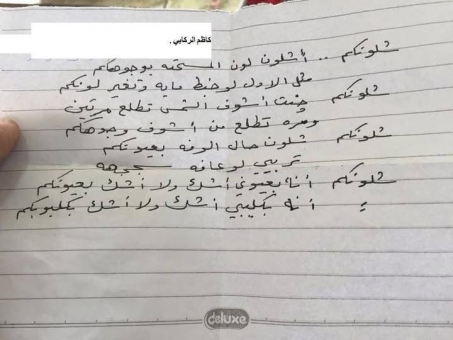 كاظم الركابي .
شلونكم .. أشلون لون المستحه بوجوهكم
مثل الاول لو خبط مايه وتغير لونكم
شلونكم چنت أشوف الشمس تطلع مرتين
ومره تطلع من أشوف وجوهكم
شلونكم شلون حال الورفه بعيونكم
تربي لو عافه
شلونكم أنه بعيوني أشك ولا أشك بعيونكم
أنه بكليبي أشك ولا أشك بكلوبكم
deluxe